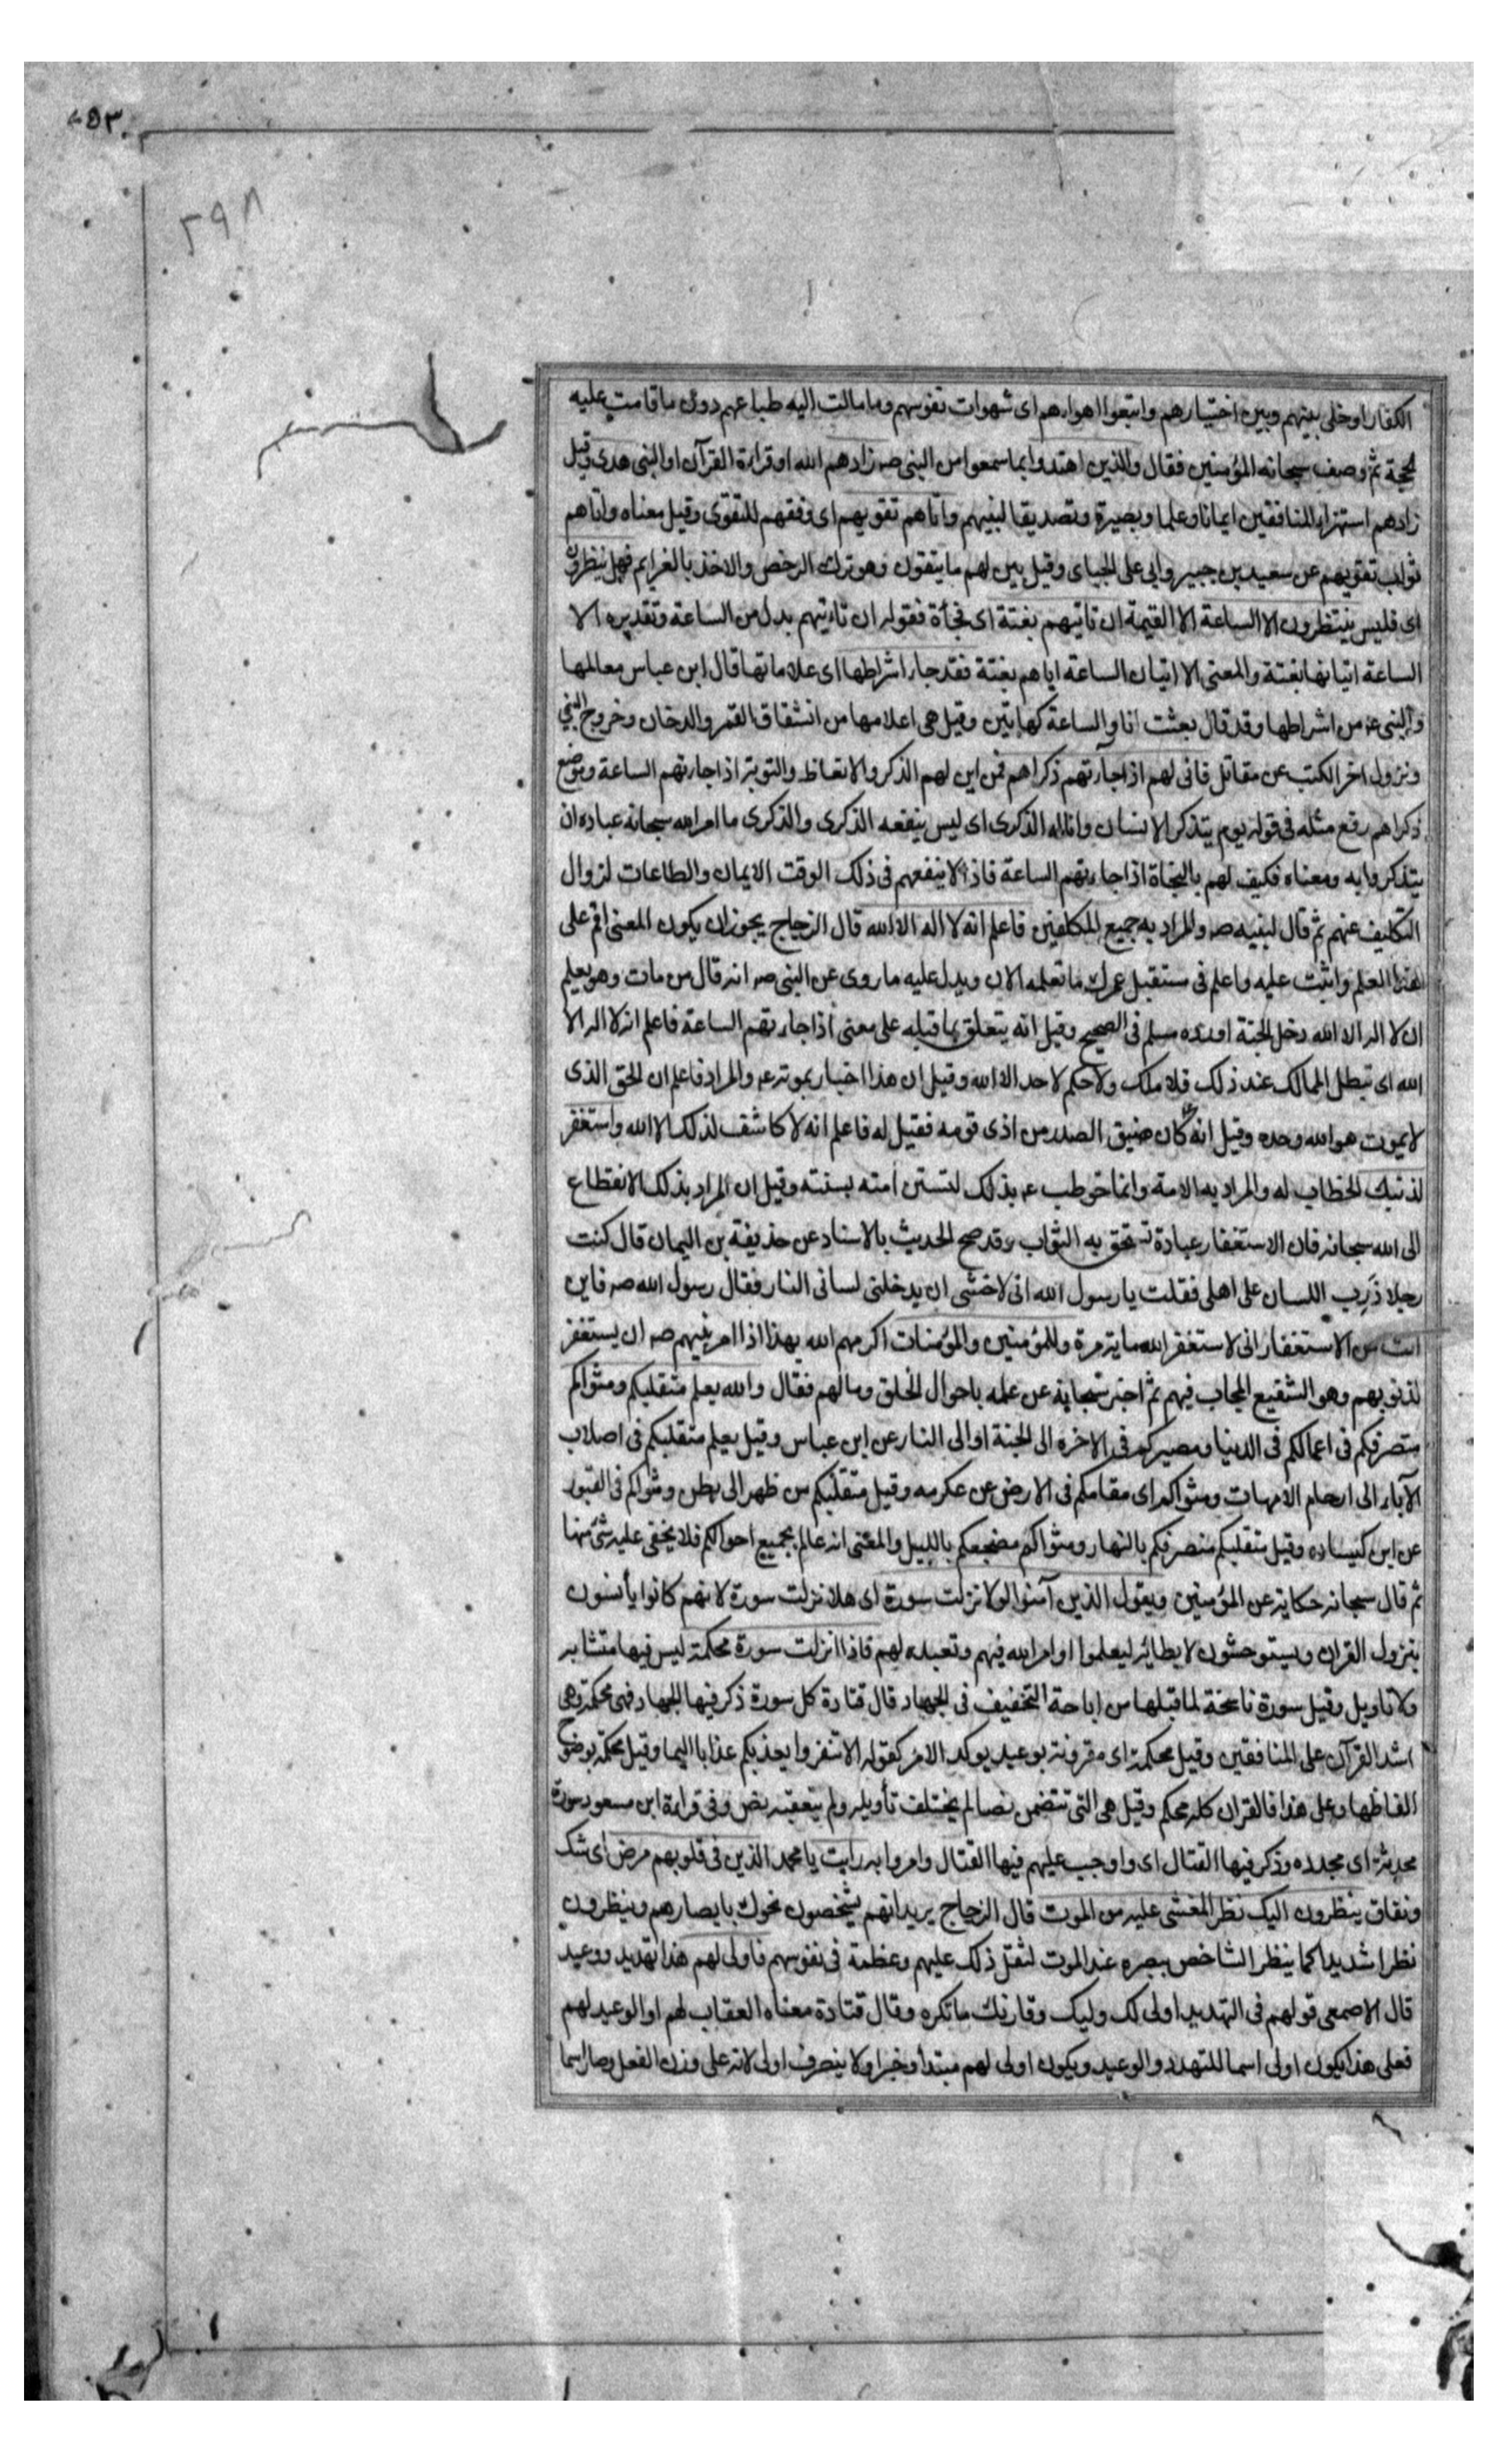 ٥٣٠
٢٩٨
الكفار او خلى بينهم وبين اختيارهم واتبعوا اهواءهم اى شهوات نفوسهم وما مالت اليه طباعهم دون ما قامت عليه
الحجة ثم وصف سبحانه المؤمنين فقال والذين اهتدوا بما سمعوا من النبى صه زادهم الله او قراءة القرآن او النبى هدى وقيل
زادهم استهزاء المنافقين ايمانا وعلما وبصيرة وتصديقا لنبيهم واتاهم تقويهم اى وفقهم للتقوى وقيل معناه واتاهم
ثواب تقويهم عن سعيد بن جبير وابى على الجبائى وقيل بين لهم ما يتقون وهو ترك الرخص والاخذ بالعزايم فهل ينظرون
اى فليس ينتظرون الا الساعة الا القيمة ان تاتيهم بغتة اى فجأة فقوله ان تاتيهم بدل من الساعة وتقديره الا
الساعة اتيانها بغتة والمعنى الا اتيان الساعة اياهم بغتة فقد جاء اشراطها اى علاماتها قال ابن عباس معالمها
والنبى عه من اشراطها وقد قال بعثت انا والساعة كهاتين وقيل هى اعلامها من انشقاق القمر والدخان وخروج النبى
ونزول اخر الكتب عن مقاتل فانى لهم اذا جآءتهم ذكراهم فمن اين لهم الذكر والاتعاظ والتوبة اذا جاءتهم الساعة وموضع
ذكراهم رفع مثله فى قوله يوم يتذكر الانسان وانا له الذكرى اى ليس ينفعه الذكرى والذكرى ما امر الله سبحانه عباده ان
يتذكروا به ومعناه فكيف لهم بالنجاة اذا جاءتهم الساعة فاذه لا ينفعهم فى ذلك الوقت الايمان والطاعات لزوال
التكليف عنهم ثم قال لنبيه صه والمراد به جميع المكلفين فاعلم انه لا اله الا الله قال الزجاج يجوز ان يكون المعنى اقم على
هذا العلم واثبت عليه واعلم فى مستقبل عمرك ما تعلمه الان ويدل عليه ما روى عن النبى صه انه قال من مات وهو يعلم
ان لا اله الا الله دخل الجنة اورده مسلم فى الصحيح وقيل انه يتعلق بما قبله على معنى اذا جاءتهم الساعة فاعلم انه لا اله الا
الله اى تبطل الممالك عند ذلك فلا ملك ولا حكم لاحد الا الله وقيل ان هذا اخبار بموته عه والمراد فاعلم ان الحق الذى
لا يموت هو الله وحده وقيل انه كان ضيق الصدر من اذى قومه فقيل له فاعلم انه لا كاشف لذلك الا الله واستغفر
لذنبك الخطاب له والمراد به الامة وانما خوطب عه بذلك لتستن امته بسنته وقيل ان المراد بذلك الانقطاع
الى الله سبحانه فان الاستغفار عبادة تستحق به الثواب وقد صح الحديث بالاسناد عن حذيفة بن اليمان قال كنت
رجلا ذرب اللسان على اهلى فقلت يا رسول الله انى لاخشى ان يدخلنى لسانى النار فقال رسول الله صه فاين
انت من الاستغفار انى لاستغفر الله مايةمرة وللمؤمنين والمؤمنات اكرمهم الله بهذا اذا امر نبيهم صه ان يستغفر
لذنوبهم وهو الشفيع المجاب فيهم ثم اخبر سبحانه عن علمه باحوال الخلق ومالهم فقال والله يعلم متقلبكم ومثواكم
متصرفكم فى اعمالكم فى الدنيا ومصيركم فى الاخرة الى الجنة او الى النار عن ابن عباس وقيل يعلم متقلبكم فى اصلاب
الآباء الى ارحام الامهات ومثواكم اى مقامكم فى الارض عن عكرمه وقيل متقلبكم من ظهر الى بطن ومثواكم فى القبور
عن ابن كيسان وقيل متقلبكم متصرفكم بالنهار ومثواكم مضجعكم بالليل والمعنى انه عالم بجميع احوالكم فلا يخفى عليه شئ منها
ثم قال سبحانه حكاية عن المؤمنين ويقول الذين آمنوا لولا نزلت سورة اى هلا نزلت سورة لانهم كانوا يأنسون
بنزول القران ويستوحشون لابطائه ليعلموا اوامر الله فيهم وتعبده لهم فاذا انزلت سورة محكمة ليس فيها متشابه
ولا تاويل وقيل سورة ناسخة لما قبلها من اباحة التخفيف فى الجهاد قال قتادة كل سورة ذكر فيها الجهاد فهى محكمة وهى
اشد القرآن على المنافقين وقيل محكمة اى مقرونة بوعيد يوكد الامر كقوله الا تنفروا يعذبكم عذابا اليما وقيل محكمة بوضوح
الفاظها وعلى هذا فالقران كله محكم وقيل هى التى تتضمن نصا لم يختلف تأويله ولم يتعقبه نص وفى قراءة ابن مسعود سورة
محدثة اى مجدده وذكر فيها القتال اى واوجب عليهم فيها القتال وامروا به رايت يا محمد الذين فى قلوبهم مرض اى شك
ونفاق ينظرون اليك نظر المغشى عليه من الموت قال الزجاج يريد انهم يشخصون نحوك بابصارهم وينظرون
نظرا شديدا كما ينظر الشاخص ببصره عند الموت لثقل ذلك عليهم وعظمة فى نفوسهم فاولى لهم هذا تهديد ووعيد
قال الاصمعى قولهم فى التهديد اولى لك وليك وقارنك ما تكره وقال قتادة معناه العقاب لهم او الوعيد لهم
فعلى هذا يكون اولى اسما للتهدد والوعيد ويكون اولى لهم مبتدأ وخبرا ولا ينصرف اولى لانه على وزن الفعل وصار اسما